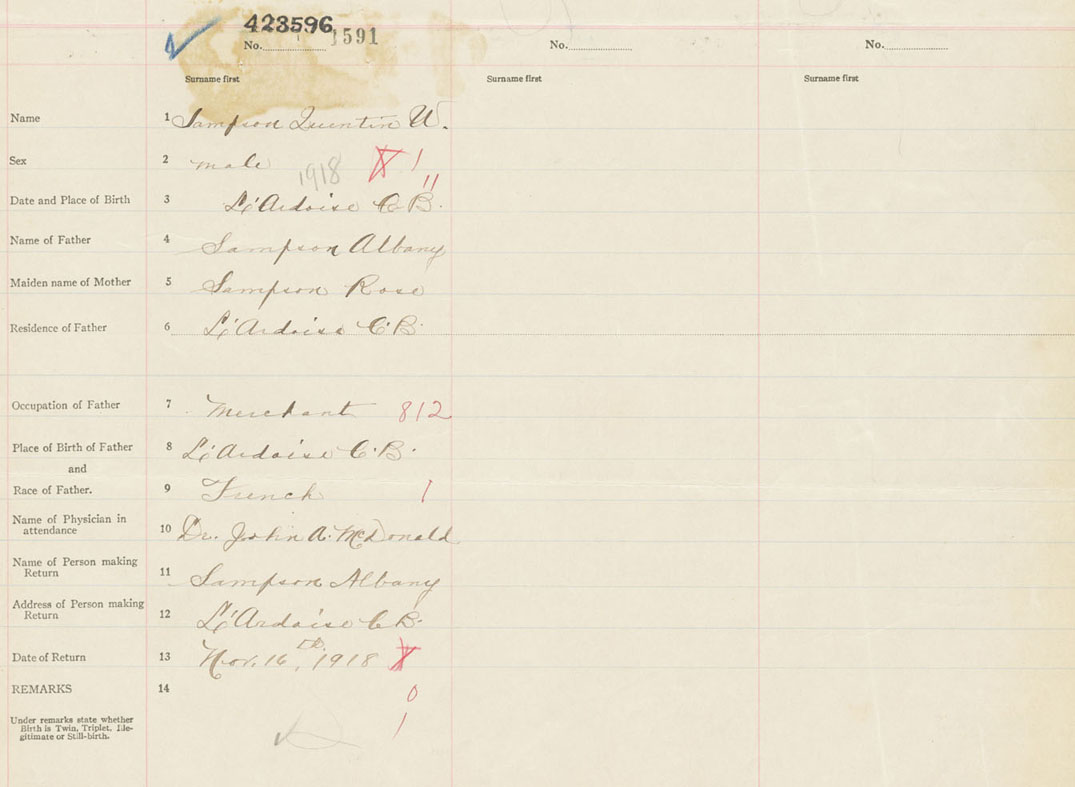 423596
No. 1591
No.
No.
Surname first
Surname first
Surname first
Name 1 Sampson Quentin W.
Sex 2 male 1918 X 1
11
Date and Place of Birth 3 L'Ardoise C.B.
Name of Father 4 Sampson Albany
Maiden name of Mother 5 Sampson Rose
Residence of Father 6 L'Ardoise C.B.
Occupation of Father 7 Merchant 812
Place of Birth of Father 8 L'Ardoise C.B.
and
Race of Father. 9 French 1
Name of Physician in
attendance 10 Dr. John A. McDonald
Name of Person making
Return 11 Sampson Albany
Address of Person making
Return 12 L'Ardoise C.B.
Date of Return 13 Nov. 16th, 1918 X
REMARKS 14 0
Under remarks state whether 1
Birth is Twin, Triplet, Ille-
gitimate or Still-birth.